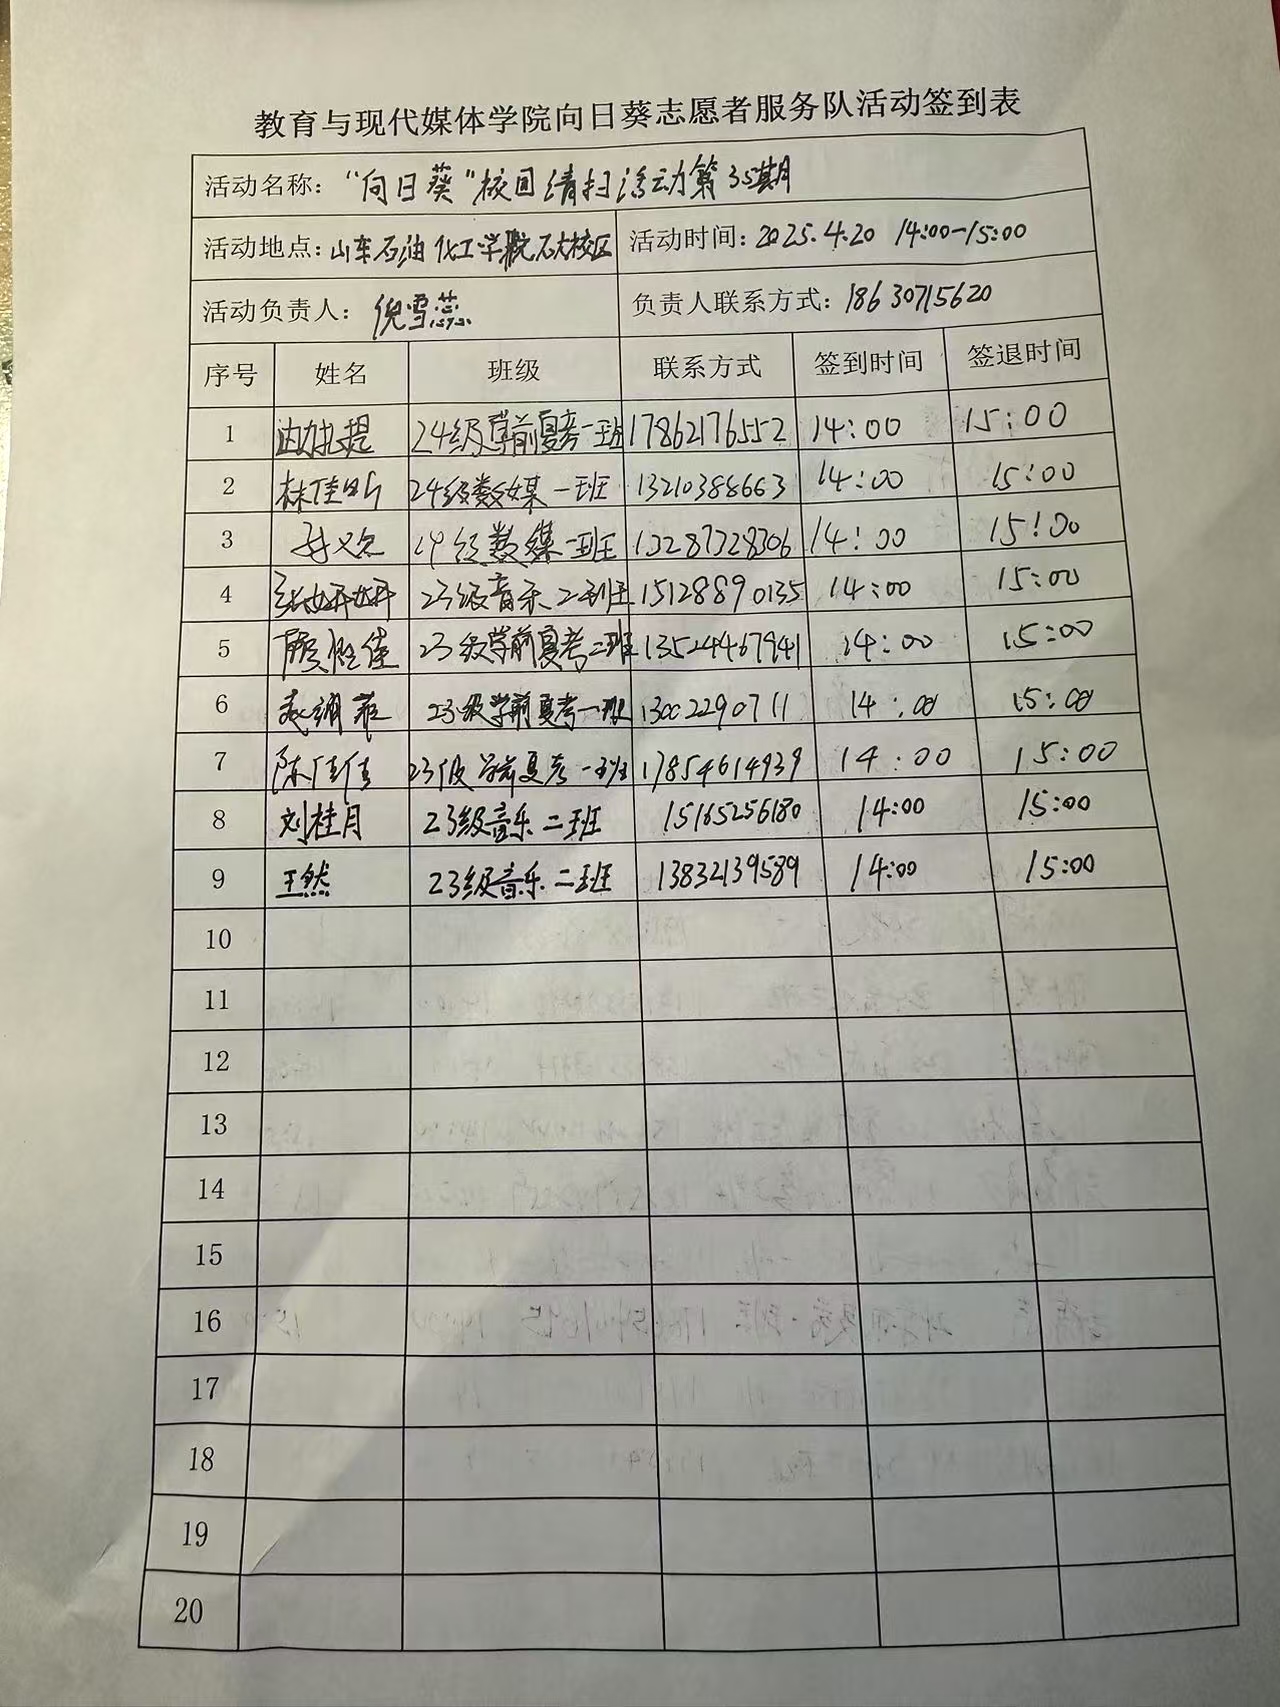 教育与现代媒体学院向日葵志愿者服务队活动签到表
活动名称："向日葵"校园清扫活动第35期
活动地点：山东石油化工学院石大校区 活动时间：2025.4.20 14:00-15:00
活动负责人：倪雪蕊 负责人联系方式：18630715620
序号 姓名 班级 联系方式 签到时间 签退时间
1 24级学前夏考一班 17862176552 14:00 15:00
2 林佳昕 24级数媒一班 13210388663 14:00 15:00
3 24级数媒一班 13287328306 14:00 15:00
4 张妍妍 23级音乐二班 15128890135 14:00 15:00
5 23级学前夏考二班 13524467941 14:00 15:00
6 23级学前夏考一班 13002290711 14:00 15:00
7 陈佳佳 23级学前夏考一班 17854614939 14:00 15:00
8 刘桂月 23级音乐二班 15165256180 14:00 15:00
9 王然 23级音乐二班 13832139589 14:00 15:00
10
11
12
13
14
15
16
17
18
19
20